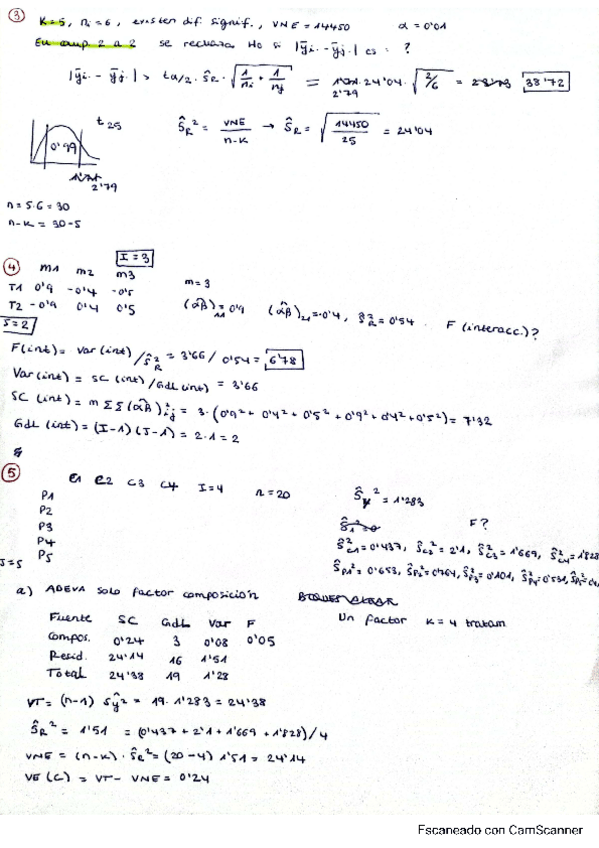 ③ K=5, ni=6, existen dif. signif., VNE=14450 α=0'01
En comp. 2 a 2 se rechaza Ho si |ȳi.-ȳj.| es = ?
|ȳi. - ȳj.| > tα/2 · ŜR · √(1/ni + 1/nj) = 2'79 · 24'04 · √(2/6) = 38'72
t25 ŜR² = VNE/n-K → ŜR = √(14450/25) = 24'04
0'99
2'79
n=5·6=30
n-K = 30-5
④ I=3
m1 m2 m3 m=3
T1 0'9 -0'4 -0'5 (αβ̂)11=0'9 (αβ̂)21=-0'4, ŜR²=0'54. F(interacc.)?
T2 -0'9 0'4 0'5
J=2
F(int) = Var(int)/ŜR² = 3'66/0'54 = 6'78
Var(int) = SC(int)/Gdl(int) = 3'66
SC(int) = m ΣΣ(αβ̂)²ij = 3·(0'9²+0'4²+0'5²+0'9²+0'4²+0'5²)= 7'32
Gdl(int) = (I-1)(J-1) = 2·1 = 2
⑤ C1 C2 C3 C4 I=4 n=20 Ŝy²=1'283
P1
P2
P3 F?
P4 Ŝ²C1=0'437, Ŝ²C2=2'1, Ŝ²C3=1'669, Ŝ²C4=1'828
J=5 P5 ŜP1²=0'653, ŜP2²=0'764, ŜP3²=0'101, ŜP4²=0'531,
a) ADEVA solo factor composición Un factor K=4 tratam
Fuente SC Gdl Var F
Compos. 0'24 3 0'08 0'05
Resid. 24'14 16 1'51
Total 24'38 19 1'28
VT = (n-1) Ŝy² = 19·1'283 = 24'38
ŜR² = 1'51 = (0'437+2'1+1'669+1'828)/4
VNE = (n-K)·ŜR² = (20-4) 1'51 = 24'14
VE(C) = VT-VNE = 0'24
Escaneado con CamScanner